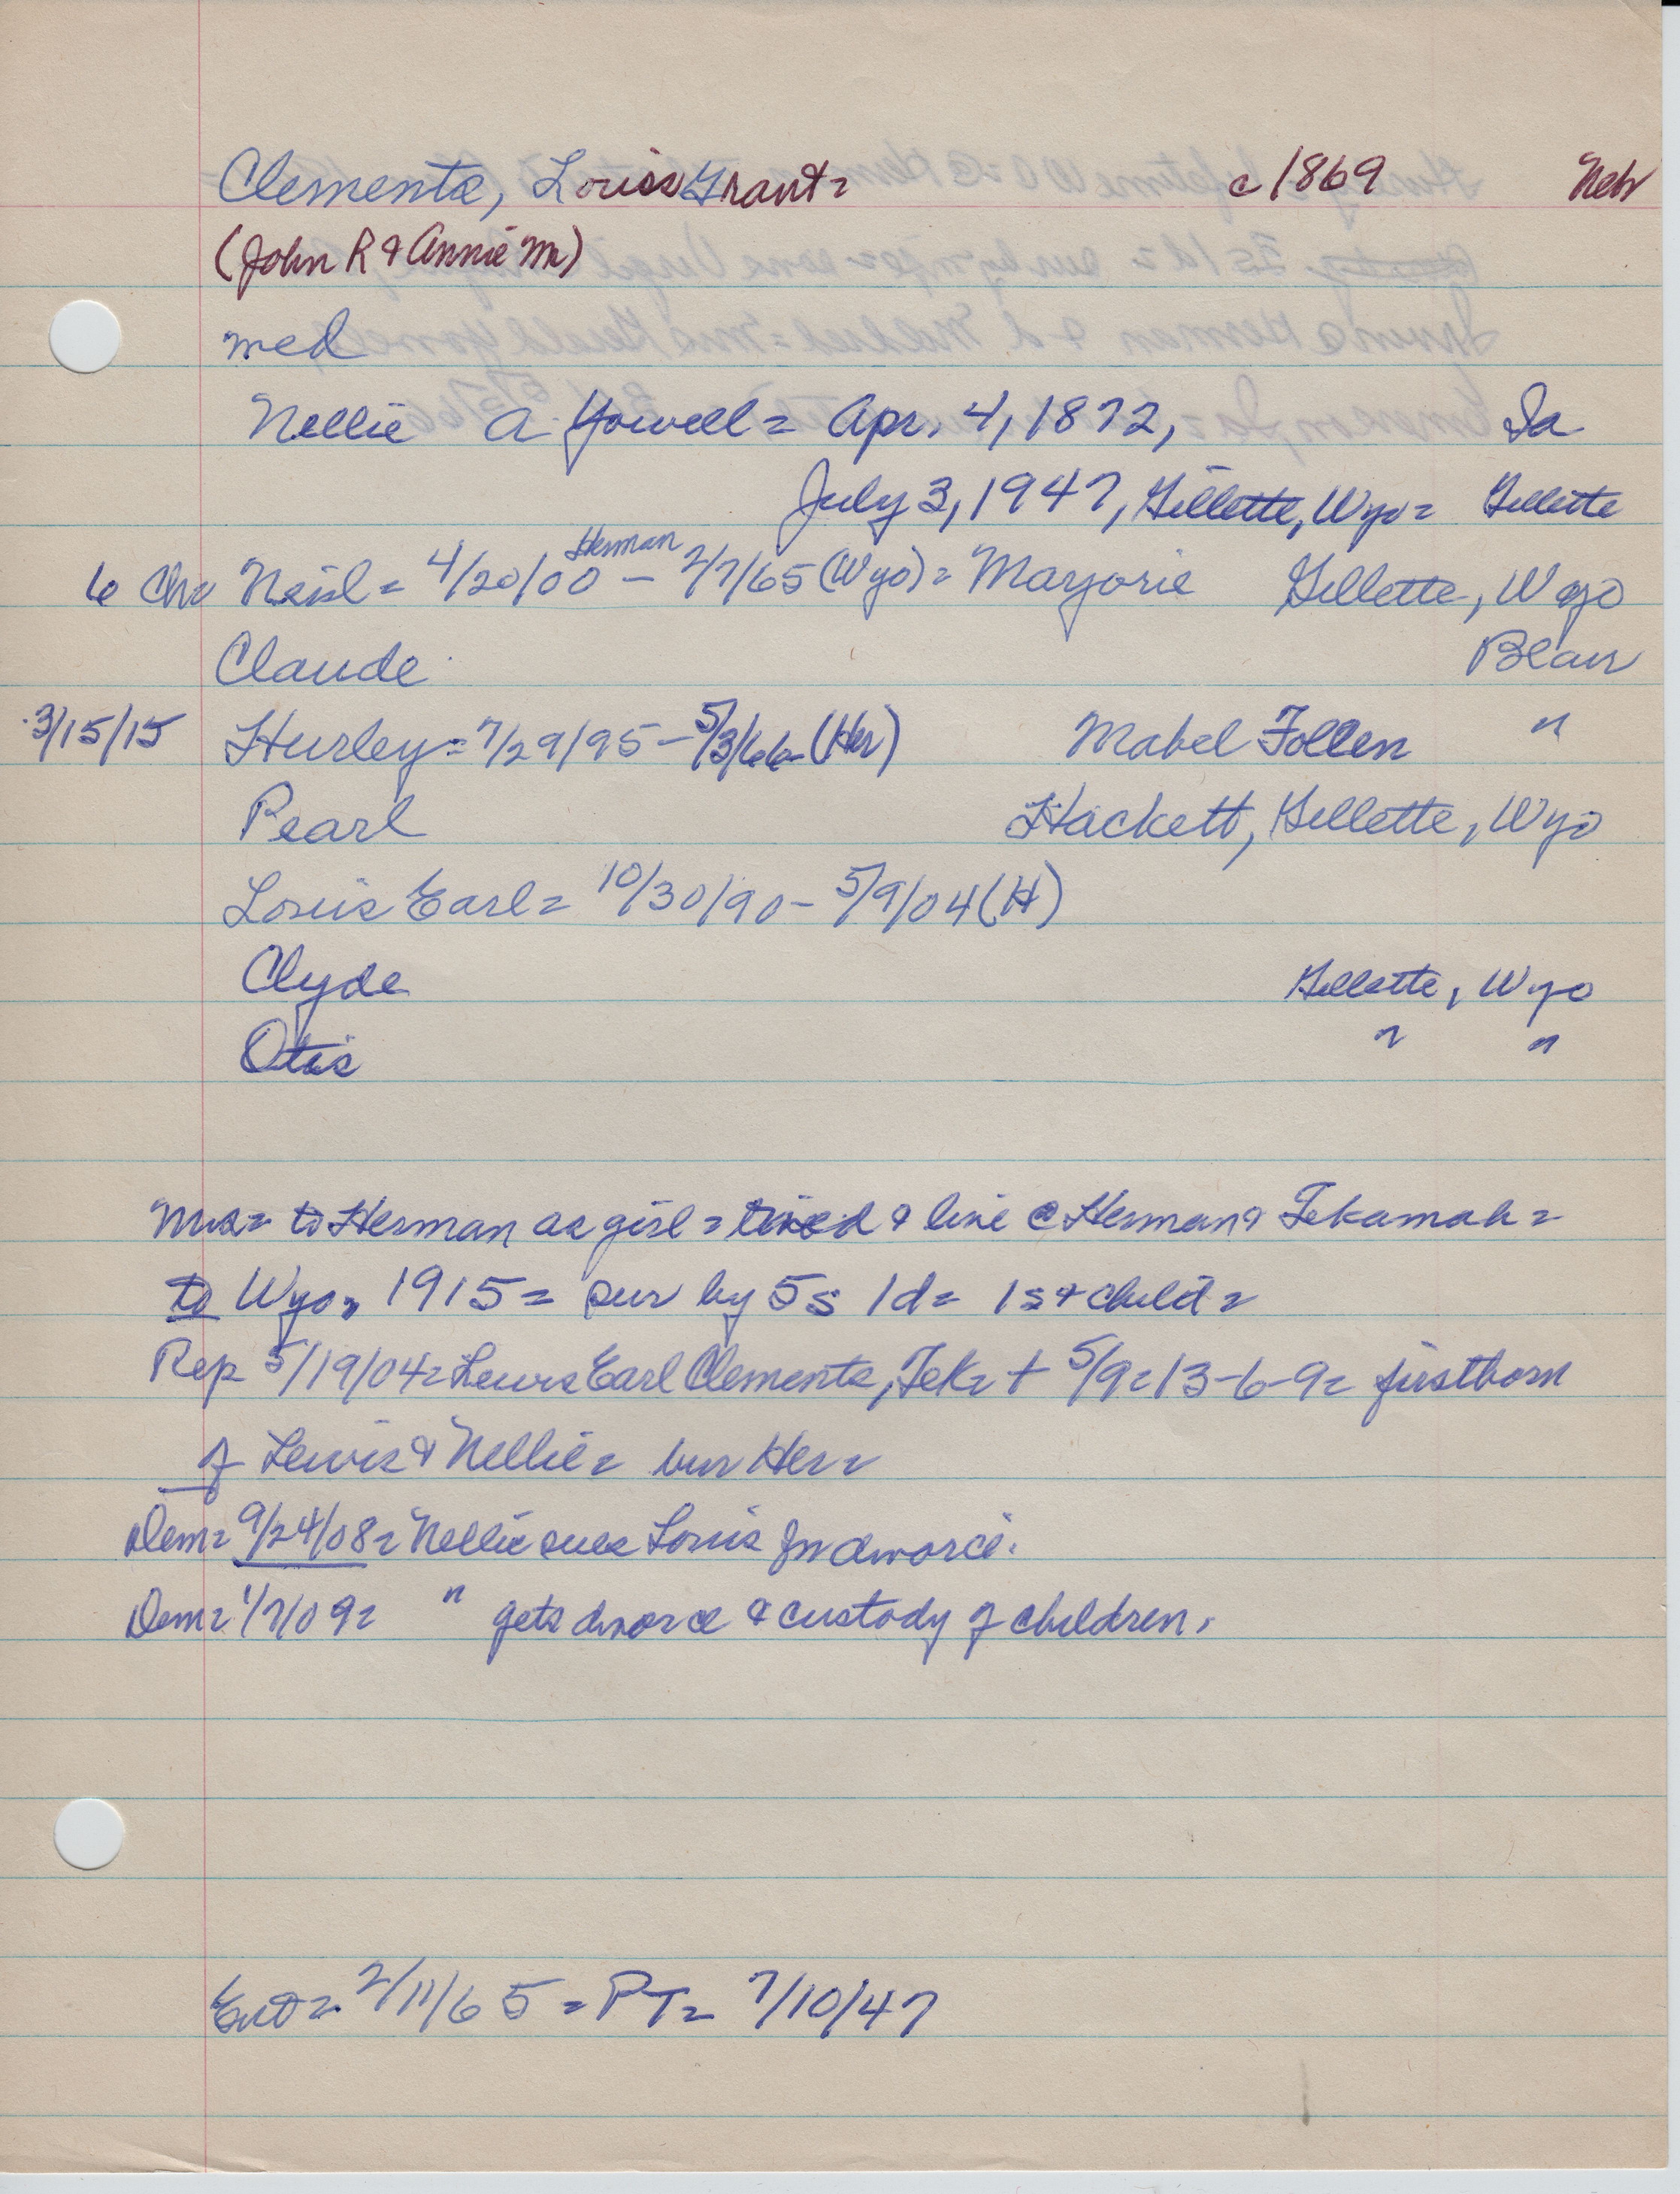 Clements, Louis Grant = c 1869 Neb
(John R & Annie M)
med
Nellie A. Yowell = Apr. 4, 1872, Ia
July 3, 1947, Gillette, Wyo = Gillette
Herman
6 Chr Neil = 4/20/00 – 2/7/65 (Wyo) = Marjorie Gillette, Wyo
Claude Blair
3/15/15 Hurley = 7/29/95 – 5/3/66 (Her) Mabel Follen "
Pearl Hackett, Gillette, Wyo
Louis Earl = 10/30/90 – 5/9/04 (H)
Clyde Gillette, Wyo
Otis " "
Mrs = to Herman as girl = & live @ Herman & Tekamah =
to Wyo, 1915 = sur by 5s 1d = 1st child =
Rep 5/19/04 = Lewis Earl Clements, Tek = + 5/9 = 13-6-9 = firstborn
of Lewis & Nellie = bur Her =
Dem = 9/24/08 = Nellie sues Louis for divorce.
Dem = 1/7/09 = " gets divorce & custody of children.
Ent = 2/11/65 = PT = 7/10/47